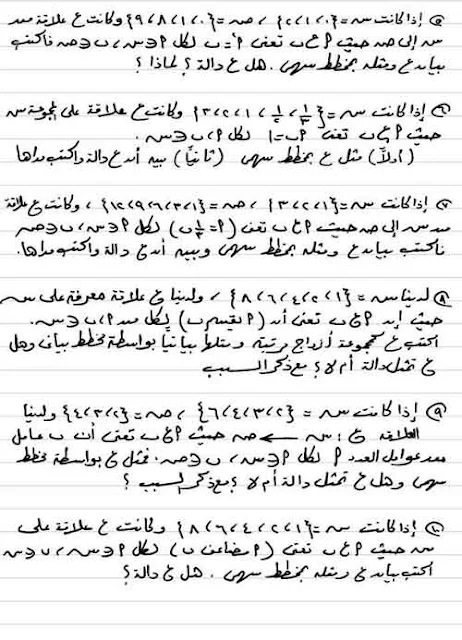 ٥) إذا كانت س = {٠، ١، ٢} ، ص = {٠، ١، ٨، ٩} وكانت ع علاقة من
س إلى ص حيث أ ع ب تعنى أ = ب لكل أ ∈ س، ب ∈ ص فاكتب
بيان ع ومثله بمخطط سهمى . هل ع دالة ؟ لماذا ؟
٦) إذا كانت س = {١/٣، ١/٢، ١، ٢، ٣} وكانت ع علاقة على المجموعة س
حيث أ ع ب تعنى أب = ١ لكل أ، ب ∈ س .
(أولاً) مثل ع بمخطط سهمى (ثانياً) بين أن ع دالة واكتب مداها
٧) إذا كانت س = {١، ٢، ٣} ، ص = {١، ٣، ٦، ٩، ١٢} ، وكانت ع علاقة
من س إلى ص حيث أ ع ب تعنى (أ = ١/٣ ب) لكل أ ∈ س، ب ∈ ص
فاكتب بيان ع ومثله بمخطط سهمى وبين أن ع دالة واكتب مداها.
٨) لدينا س = {١، ٢، ٤، ٦، ٨} ، ولدينا ع علاقة معرفة على س
حيث إن أ ع ب تعنى أن (أ تقسم ب) لكل من أ، ب ∈ س .
اكتب ع كمجموعة أزواج مرتبة ومثلها بيانياً بواسطة مخطط بيانى وهل
ع تمثل دالة أم لا ؟ مع ذكر السبب
٩) إذا كانت س = {٢، ٣، ٤، ٦} ، ص = {٢، ٣، ٤} ولدينا
العلاقة ع : س ← ص حيث أ ع ب تعنى أن ب عامل
من عوامل العدد أ لكل أ ∈ س، ب ∈ ص . فمثل ع بواسطة مخطط
سهمى وهل ع تمثل دالة أم لا ؟ مع ذكر السبب ؟
١٠) إذا كانت س = {١، ٢، ٤، ٦، ٨} وكانت ع علاقة على
س حيث أ ع ب تعنى (أ مضاعف ب) لكل أ ∈ س، ب ∈ س
اكتب بيان ع ومثله بمخطط سهمى . هل ع دالة ؟